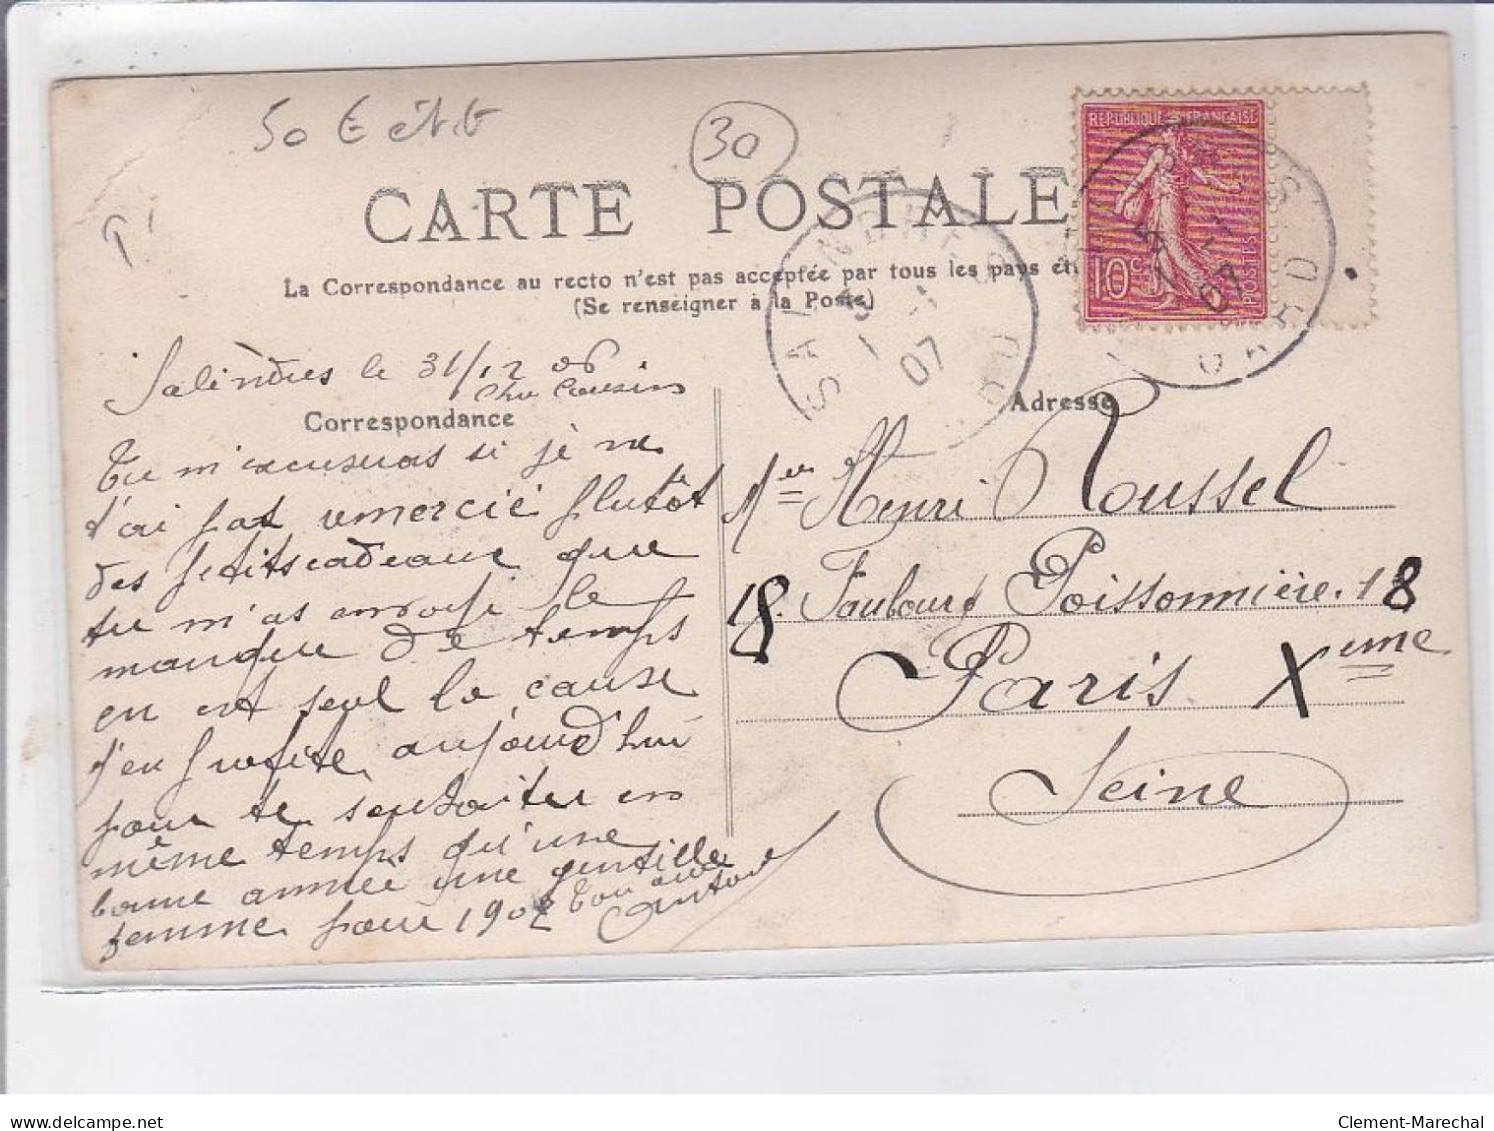 50 €
30
CARTE POSTALE
La Correspondance au recto n'est pas acceptée par tous les pays ét
(Se renseigner à la Poste)
REPUBLIQUE FRANÇAISE
10c
POSTES
SALINDRES
GARD
5 - 1
07
GARD
07
Salindres le 31/12 06
Cher Cousin
Correspondance
Tu m'excuseras si je ne
t'ai pas remercié plutôt
des petits cadeaux que
tu m'as envoyé le
manque de temps
en est seul la cause
j'en profite aujourd'hui
pour te souhaiter en
même temps qu'une
bonne année une gentille
femme pour 1907 Ton ami
Anton
Adresse
Mr Henri Roussel
18. Faubourg Poissonnière. 18
Paris Xeme
Seine
Clement-Marechal